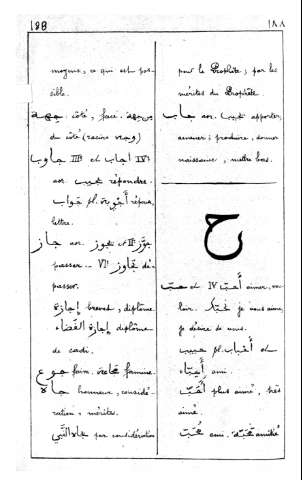 188
١٨٨
moyens, ce qui est pos-
sible.
جهة côté, face. من جهة
du côté (racine وجه)
جاوب IIIº et اجاب IVº
aor. يجيب répondre.
جواب pl. أجوبة réponse,
lettre.
جاز aor. يجوز et IIº جوّز
passer — VIº تجاوز dé-
passer.
إجازة brevet, diplôme.
إجازة القضاء diplôme
de cadi.
جوع faim. مجاعة famine.
جاه honneur, considé-
ration, mérite.
جاه النّبي par considération
pour le Prophète ; par les
mérites du Prophète.
جاب aor. يجيب apporter,
amener ; produire, donner
naissance, mettre bas.
ح
حبّ et IV أحبّ aimer, vou-
loir. je vous aime,
je désire de vous.
حبيب pl. أحباب et
أحبّاء ami.
أحبّ plus aimé, très
aimé.
محبّ ami. محبّة amitié